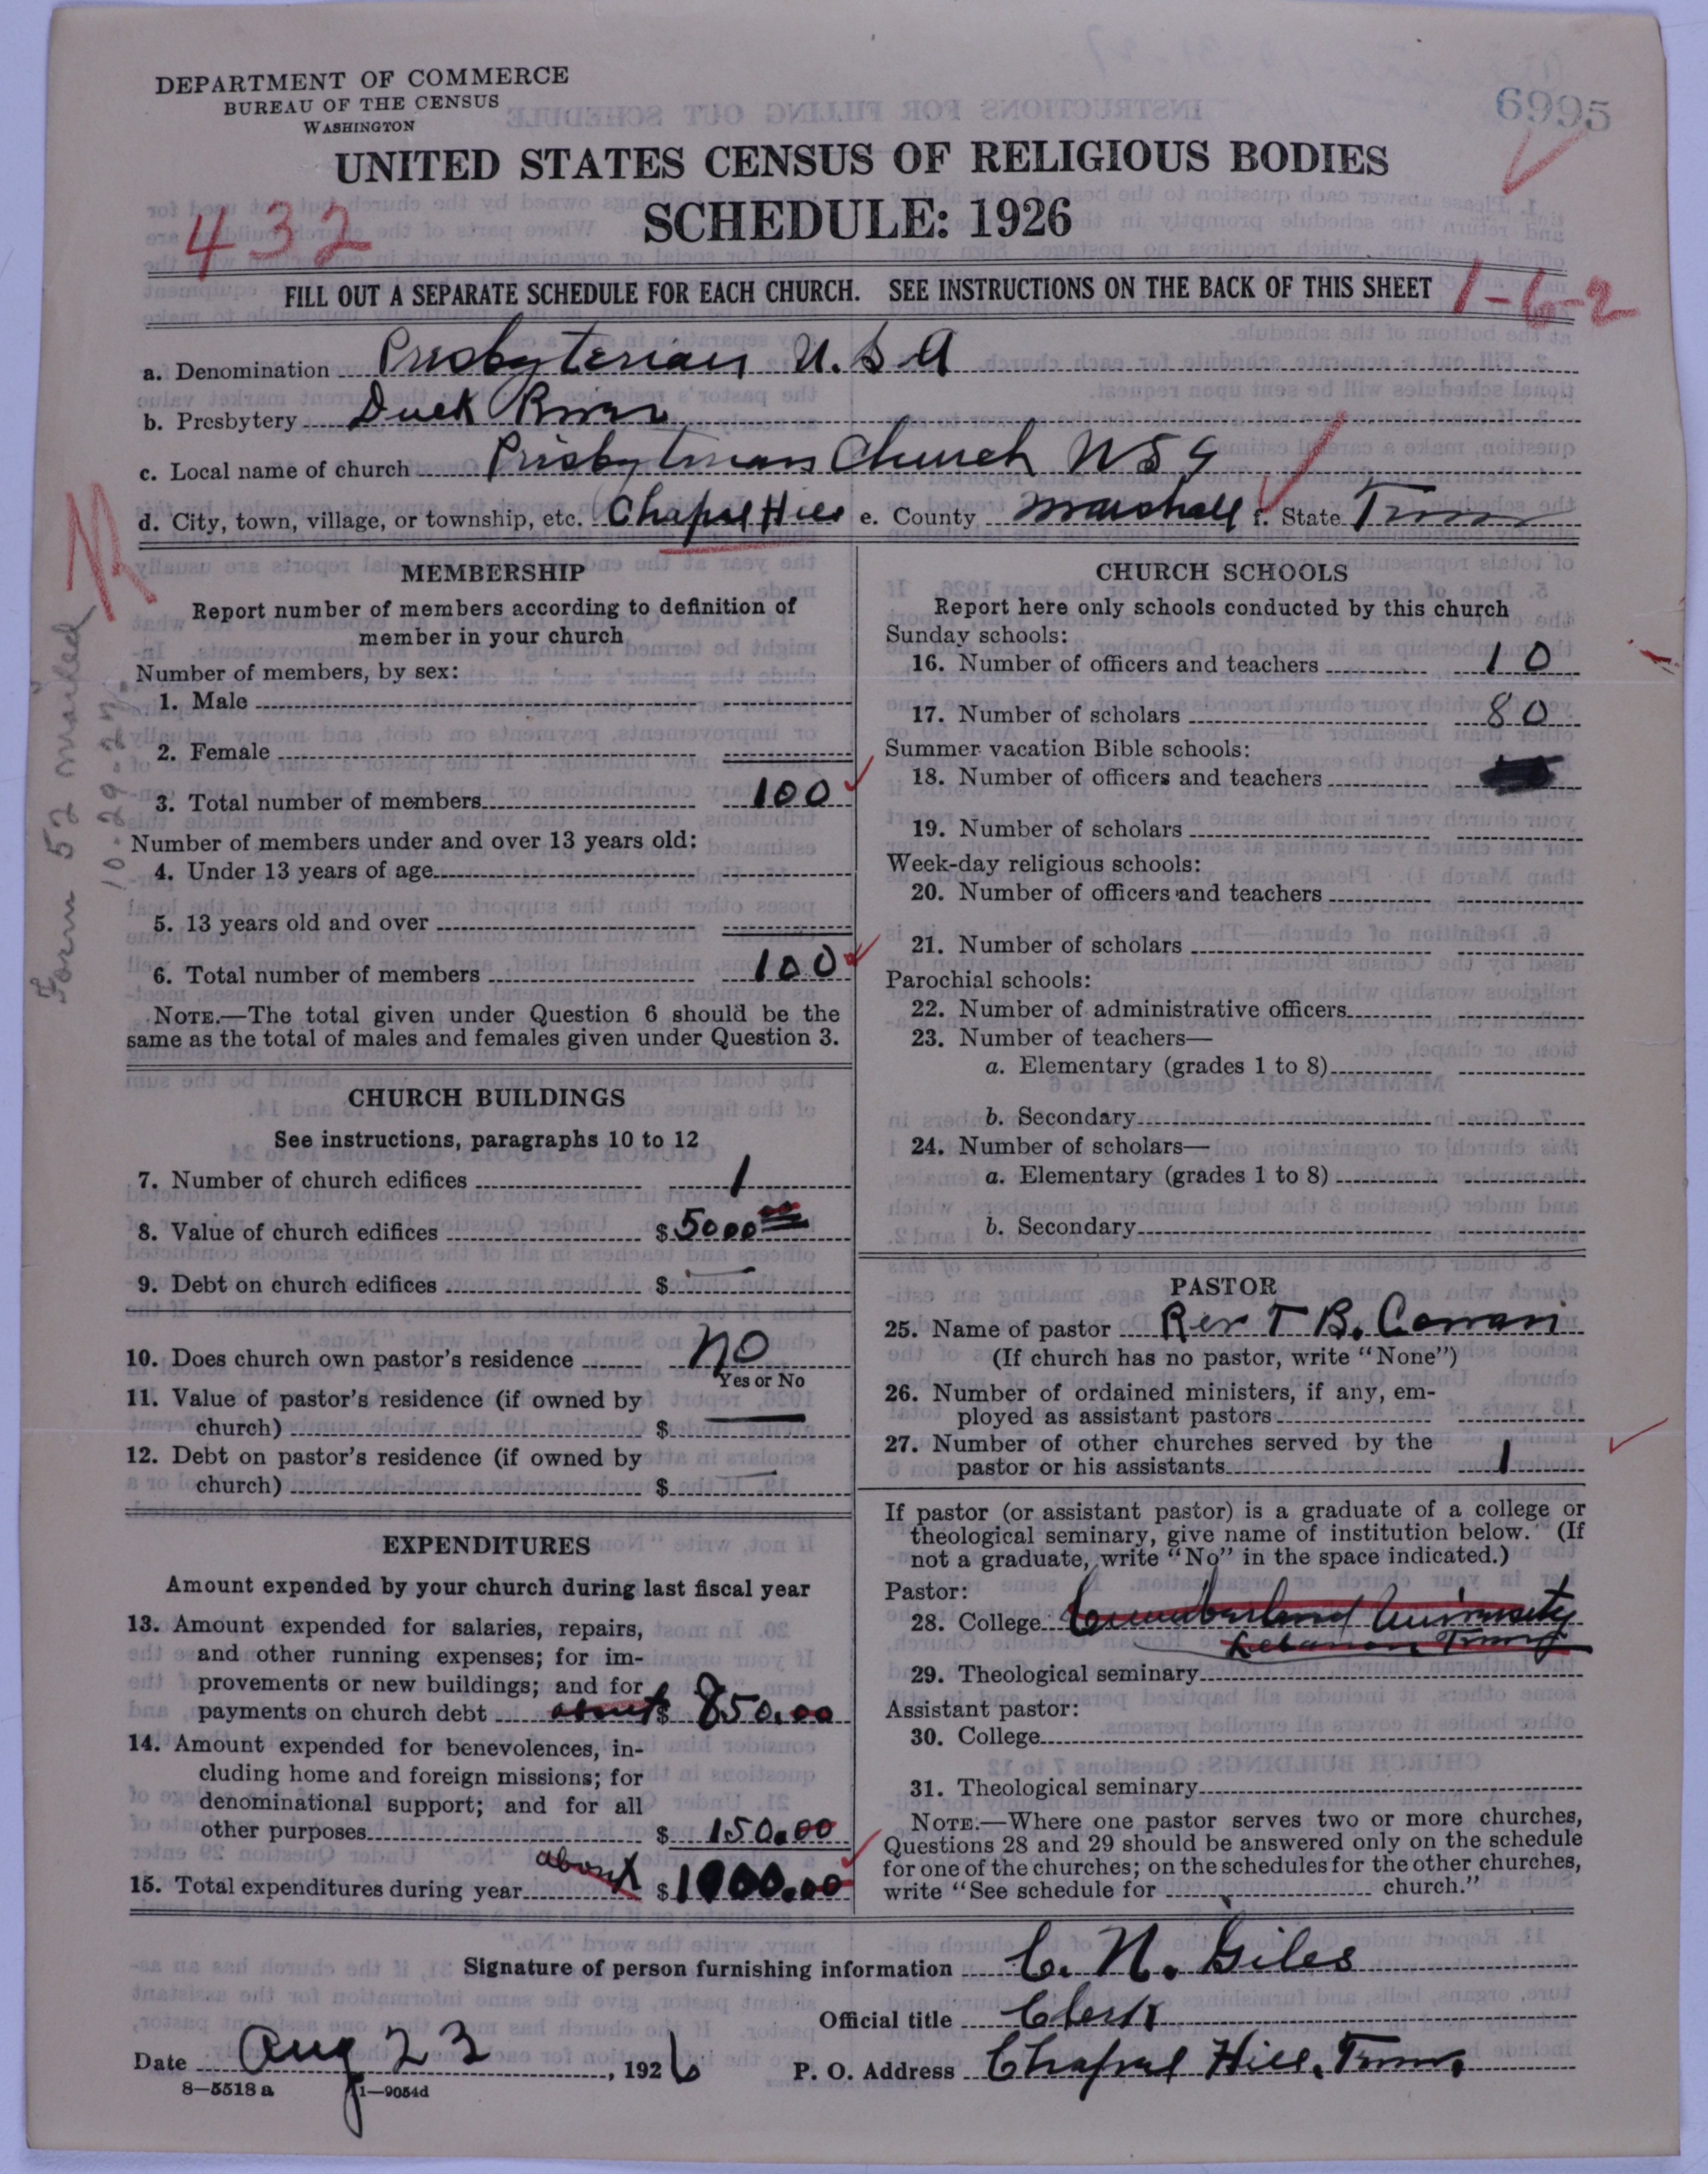 DEPARTMENT OF COMMERCE
BUREAU OF THE CENSUS
WASHINGTON
6995
UNITED STATES CENSUS OF RELIGIOUS BODIES
SCHEDULE: 1926
432
FILL OUT A SEPARATE SCHEDULE FOR EACH CHURCH. SEE INSTRUCTIONS ON THE BACK OF THIS SHEET
1-6-2
a. Denomination Presbyterian U.S.A
b. Presbytery Duck River
c. Local name of church Presbyterian Church USA
d. City, town, village, or township, etc. Chapel Hill e. County Marshall f. State Tenn
Form 52 mailed
10-29-27.
MEMBERSHIP
Report number of members according to definition of
member in your church
Number of members, by sex:
1. Male
2. Female
3. Total number of members 100
Number of members under and over 13 years old:
4. Under 13 years of age
5. 13 years old and over
6. Total number of members 100
NOTE.—The total given under Question 6 should be the
same as the total of males and females given under Question 3.
CHURCH BUILDINGS
See instructions, paragraphs 10 to 12
7. Number of church edifices 1
8. Value of church edifices $ 5000
9. Debt on church edifices $ —
10. Does church own pastor's residence no
Yes or No
11. Value of pastor's residence (if owned by
church) $ —
12. Debt on pastor's residence (if owned by
church) $ —
EXPENDITURES
Amount expended by your church during last fiscal year
13. Amount expended for salaries, repairs,
and other running expenses; for im-
provements or new buildings; and for
payments on church debt about $ 850.00
14. Amount expended for benevolences, in-
cluding home and foreign missions; for
denominational support; and for all
other purposes $ 150.00
15. Total expenditures during year about $ 1000.00
CHURCH SCHOOLS
Report here only schools conducted by this church
Sunday schools:
16. Number of officers and teachers 10
17. Number of scholars 80
Summer vacation Bible schools:
18. Number of officers and teachers
19. Number of scholars
Week-day religious schools:
20. Number of officers and teachers
21. Number of scholars
Parochial schools:
22. Number of administrative officers
23. Number of teachers—
a. Elementary (grades 1 to 8)
b. Secondary
24. Number of scholars—
a. Elementary (grades 1 to 8)
b. Secondary
PASTOR
25. Name of pastor Rev T B. Cowan
(If church has no pastor, write "None")
26. Number of ordained ministers, if any, em-
ployed as assistant pastors
27. Number of other churches served by the
pastor or his assistants 1
If pastor (or assistant pastor) is a graduate of a college or
theological seminary, give name of institution below. (If
not a graduate, write "No" in the space indicated.)
Pastor:
28. College Cumberland University
Lebanon Tenn
29. Theological seminary
Assistant pastor:
30. College
31. Theological seminary
NOTE.—Where one pastor serves two or more churches,
Questions 28 and 29 should be answered only on the schedule
for one of the churches; on the schedules for the other churches,
write "See schedule for church."
Signature of person furnishing information C. N. Giles
Official title Clerk
Date Aug 23, 1926 P. O. Address Chapel Hill, Tenn.
8—5518 a 1—9054d